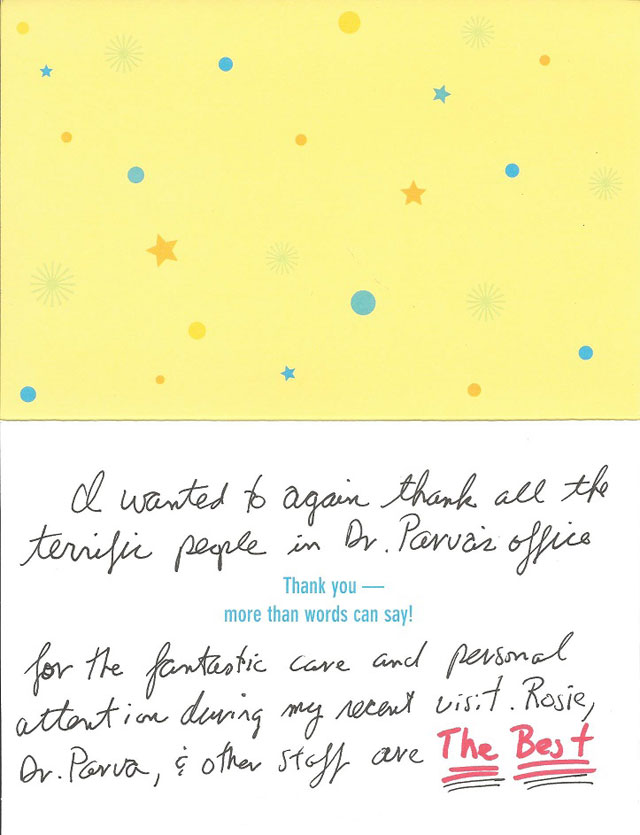 I wanted to again thank all the
terrific people in Dr. Parva's office
Thank you —
more than words can say!
for the fantastic care and personal
attention during my recent visit. Rosie,
Dr. Parva, & other staff are The Best